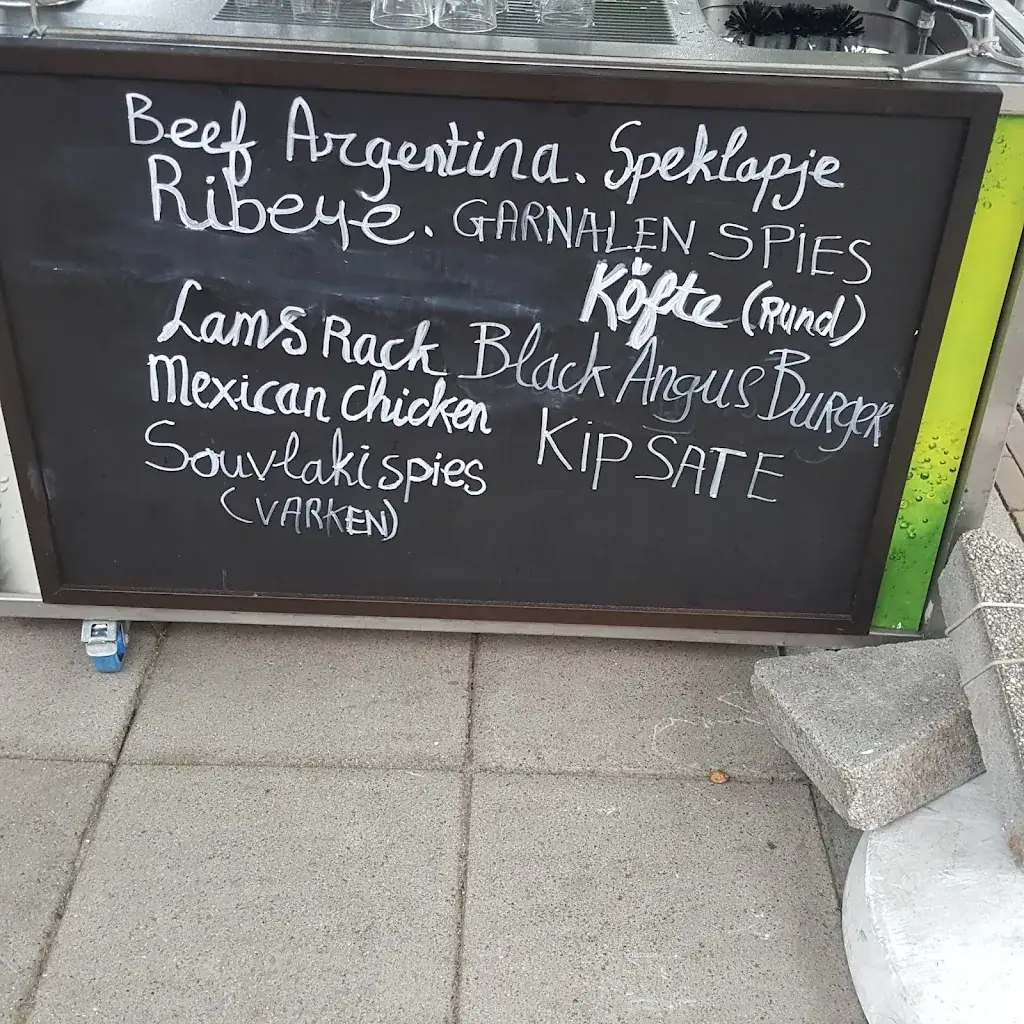 Beef Argentina. Speklapje
Ribeye. GARNALEN SPIES
Köfte (Rund)
Lams Rack Black Angus Burger
Mexican chicken
KIP SATE
Souvlaki spies
(VARKEN)